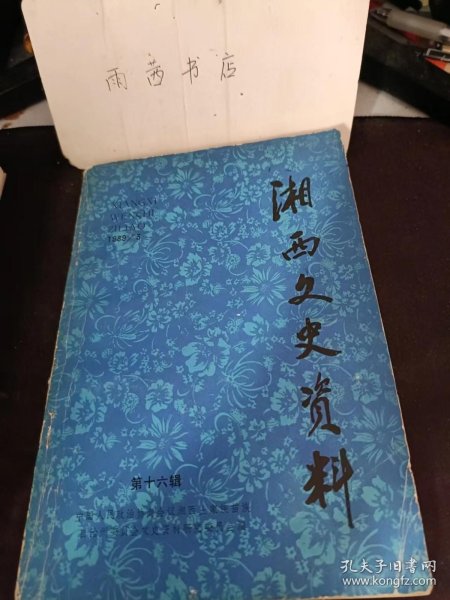 雨茜书店
XIANGXI
WENSHI
ZILIAO
1989/5
湘西文史资料
第十六辑
孔夫子旧书网
www.kongfz.com